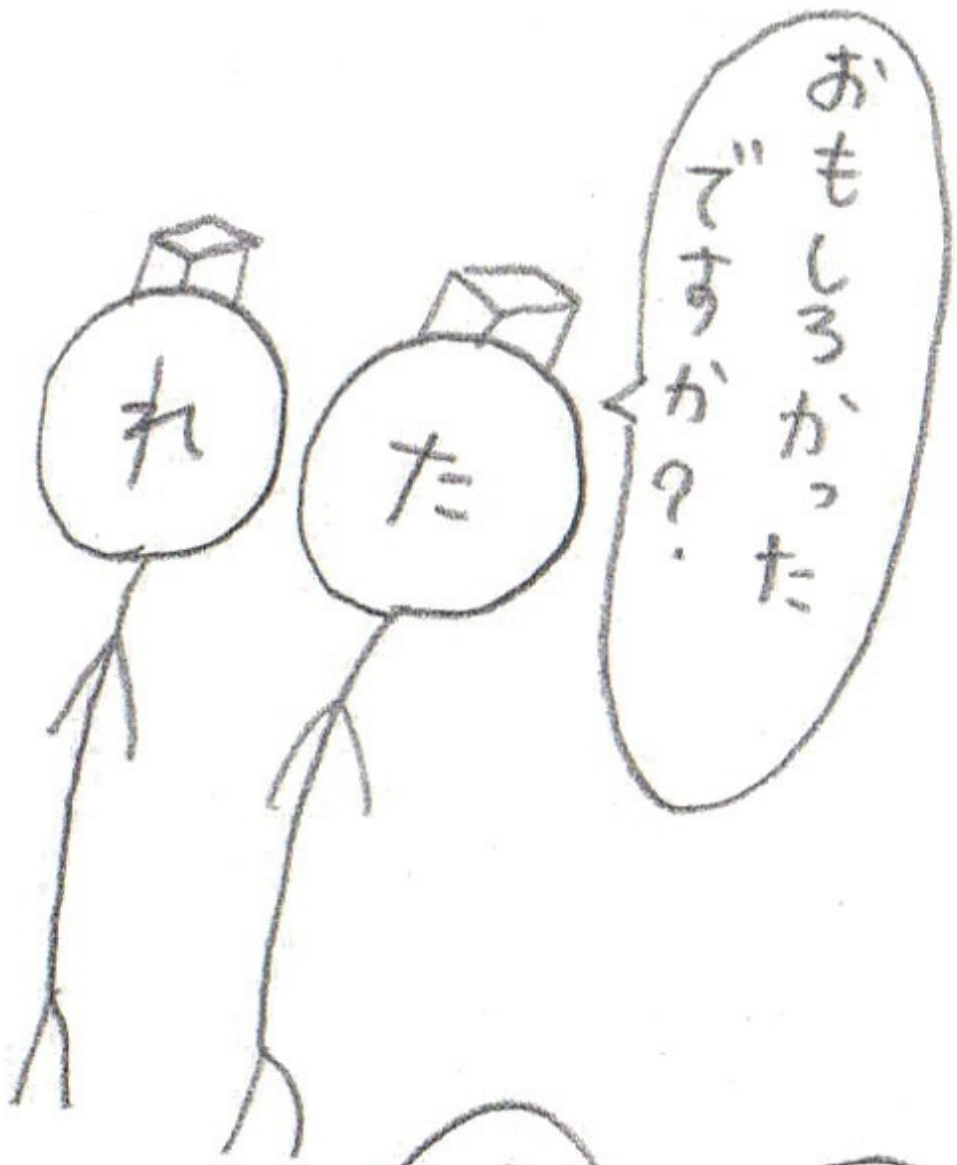 おもしろかった
ですか?
た
れ